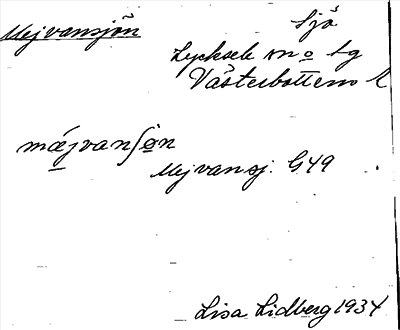 Mejvansjön
Sjö
Lycksele sn o lg
Västerbottens l
mæjvanʃøn
Mejvansj. G49
Lisa Lidberg 1934